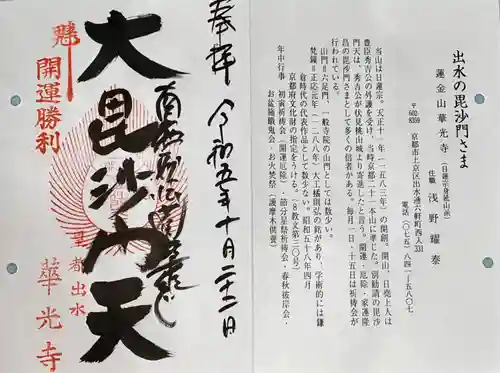 出水の毘沙門さま
蓮金山 華光寺(日蓮宗身延山派)
住職 浅野 耀泰
〒602-8359 京都市上京区出水通六軒町西入331
電話(〇七五)八四一-五八〇七
当山は日蓮宗。天正十一年(一五八三年)の開創。開山、日堯上人は
豊臣秀吉公の外護を受け、当時京都二十一本山に準じた。別勧請の毘沙
門天は、秀吉公が伏見桃山城より寄進したと言う。開運・厄除・家運隆
昌の毘沙門さまとして多くの信者がある。毎月一日・十五日は祈祷会が
行われている。
山門=六足門、一般寺院の山門としては数少い。
梵鐘=正応元年(一二八八年)大工橘則弘の銘があり、学術的には鎌
倉時代の代表作品として数少ない。昭和五十八年四月
京都府文化財の指定をうける。(8教文第二〇号)
年中行事
初寅祈祷会(開運厄除)・節分星祭祈祷会・春秋彼岸会・
お盆施餓鬼会・お火焚祭(護摩木供養)
奉拝 令和五年十月二十二日
南無妙法蓮華経
大毘沙門天
開運勝利
聖者出水
華光寺